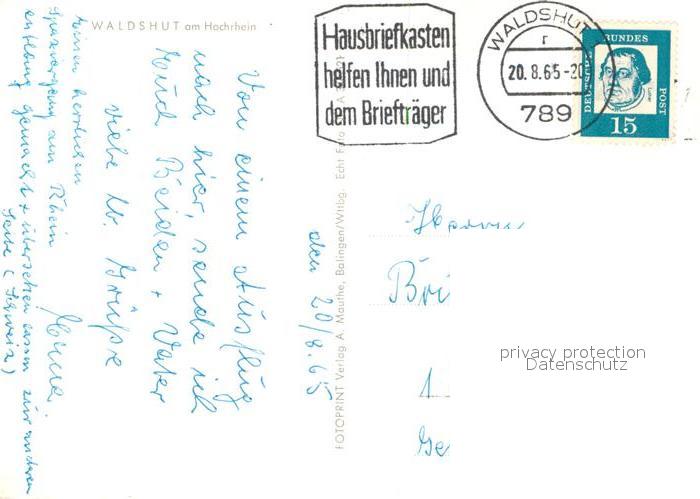 WALDSHUT am Hochrhein
Hausbriefkasten
helfen Ihnen und
dem Briefträger
WALDSHUT
r
20.8.65-20
789
DEUTSCHE
BUNDES
POST
15
den 20/8.65
Von einem Ausflug
nach hier, sende ich
Euch Beiden + Vater
viele lb. Grüße
Einen herrlichen
Spaziergang am Rhein
entlang gemacht + übersetzen lassen zur anderen
Seite (Schweiz)
FOTOPRINT Verlag A. Mauthe, Balingen/Wttbg. Echt Foto
Herrn
Bri
1
Ge
privacy protection
Datenschutz